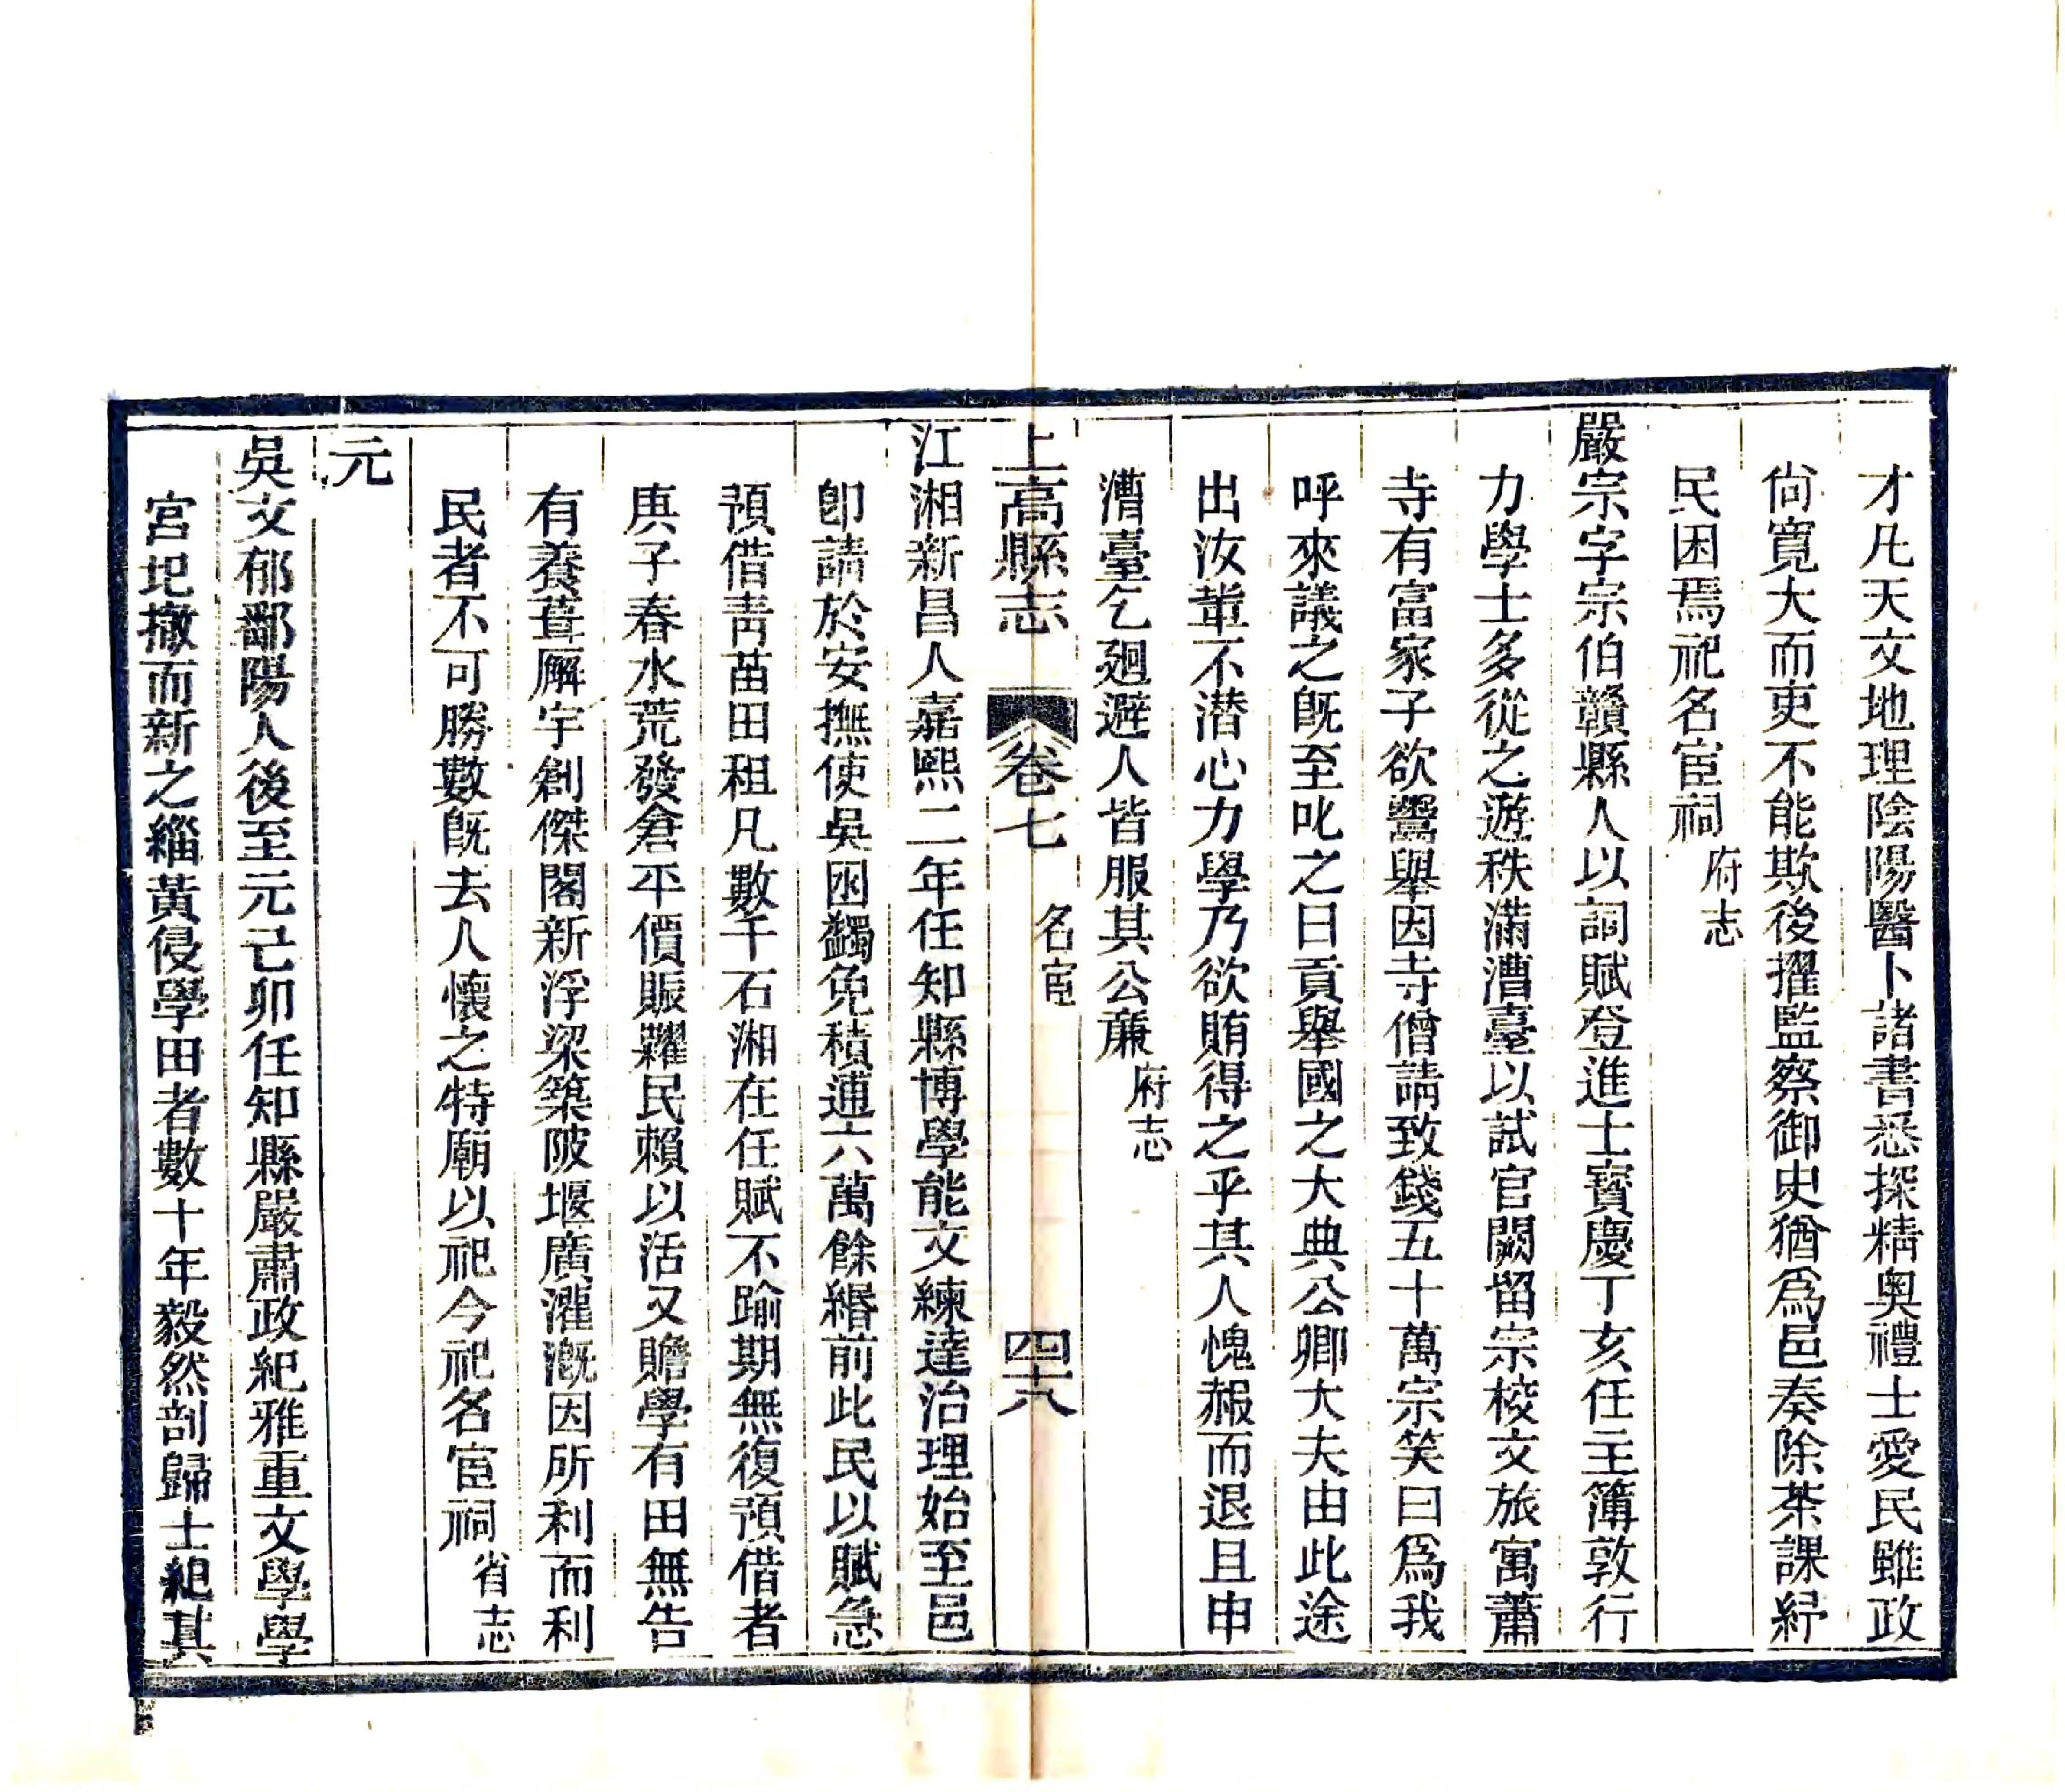 才凡天文地理陰陽醫卜諸書悉探精奧禮士愛民雖政
尙寬大而吏不能欺後擢監察御史猶爲邑奏除茶課紓
民困焉祀名宦祠府志
嚴宗字宗伯贛縣人以詞賦登進士寳慶丁亥任主簿敦行
力學士多從之遊秩滿漕臺以試官闕留宗校文旅寓蕭
寺有富家子欲鬻舉因寺僧請致錢五十萬宗笑曰爲我
呼來議之旣至叱之曰貢舉國之大典公卿大夫由此途
出汝軰不潜心力學乃欲賄得之乎其人愧赧而退且申
漕臺乞廻避人皆服其公廉府志
上高縣志 卷七 名宦 四十八
江湘新昌人嘉熙二年任知縣博學能文練達治理始至邑
卽請於安撫使吳囦蠲免積逋六萬餘緡前此民以賦急
預借靑苗田租凡數千石湘在任賦不踰期無復預借者
庚子春水荒發倉平價賑糶民賴以活又贍學有田無告
有養葺廨宇創傑閣新浮梁築陂堰廣灌漑因所利而利
民者不可勝數旣去人懷之特廟以祀今祀名宦祠省志
元
吳文郁鄱陽人後至元己卯任知縣嚴肅政紀雅重文學學
宮圯撤而新之緇黃侵學田者數十年毅然剖歸士紀其